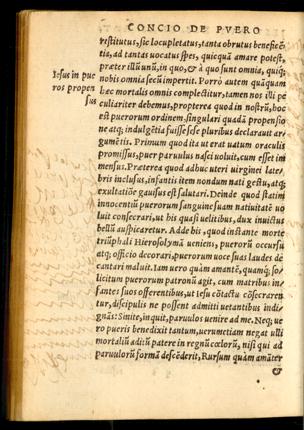 CONCIO DE PVERO
restitutus, sic locupletatus, tanta obrutus beneficẽ
tia, ad tantas uocatus spes, quicquã amare potest,
præter illũ unũ, in quo, & à quo sunt omnia, quiq;
nobis omnia secũ impertit. Porrò autem quãquam
Iesus in pue
ros propen
sus
hæc mortalis omnis complectitur, tamen nos illi pe
culiariter debemus, propterea quod in nostrũ, hoc
est puerorum ordinem, singulari quadã propensio
ne atq; indulgẽtia fuisse sese pluribus declarauit ar
gumẽtis. Primum quod ita ut erat uatum oraculis
promissus, puer paruulus nasci uoluit, cum esset im
mensus. Præterea quod adhuc uteri uirginei late/
bris inclusus, infantis item nondum nati gestu, atq;
exultatiõe gauisus est salutari. Deinde quod statim
innocentiũ puerorum sanguine suam natiuitatẽ uo
luit consecrari, ut his quasi uelitibus, dux inuictus
bellũ auspicaretur. Adde his, quod instante morte
triũphali Hierosolymã ueniens, puerorũ occursu
atq; officio decorari, puerorum uoce suas laudes de
cantari maluit. Iam uero quàm amantẽ, quamq; so/
licitum puerorum patronũ agit, cum matribus in/
fantes suos offerentibus, ut iesu cõtactu cõsecraren
tur, discipulis ne possent admitti uetantibus indi/
gnãs: Sinite, inquit, paruulos uenire ad me. Neq; ue
ro pueris benedixit tantum, uerumetiam negat ulli
mortaliũ aditũ patere in regnũ cœlorũ, nisi qui ad
paruulorũ formã descẽderit, Rursum quàm amãter
&